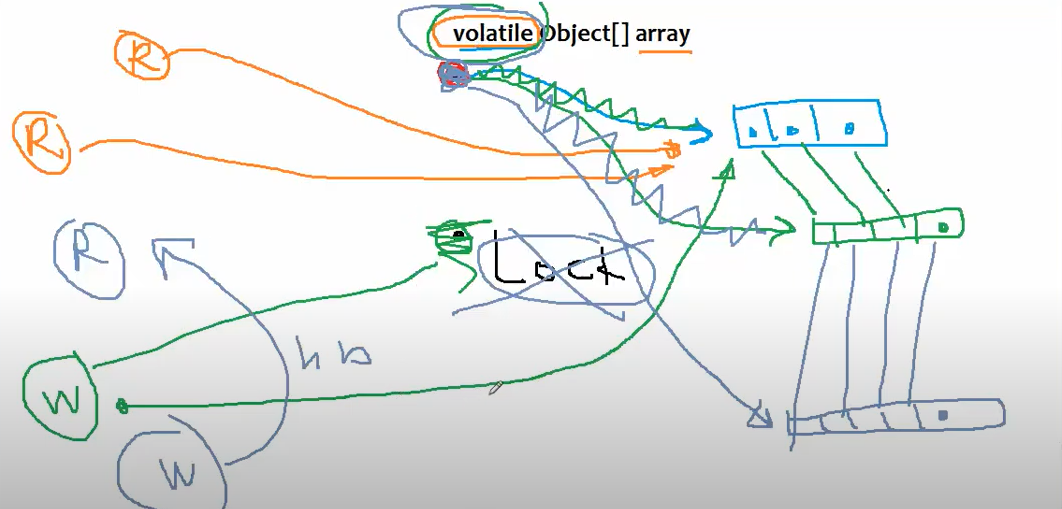 volatile Object[] array
R
R
R
Lock
h b
W
W